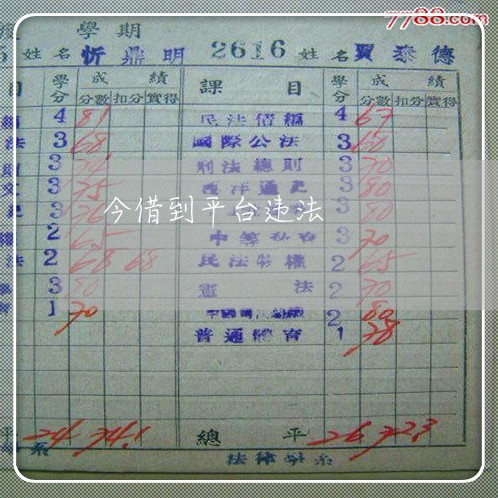 7788.com
學期
姓名 忻鼎明 2616 姓名 賈泰德
目 學分 成績 課目 學分 成績
分數 扣分 實得 分數 扣分 實得
4 81 民法債編 4 67
法 3 68 國際公法 3 60
3 刑法總則 3 70
3 75 西洋通史 3 80
3 3 80
今借到平台违法
2 65 3 70
法 2 68 68 民法物權 2 65
3 80 憲法 2 70
1 70 2 80
普通體育 1 78
平 24 74.1 總平 26 72.3
系 法律學系